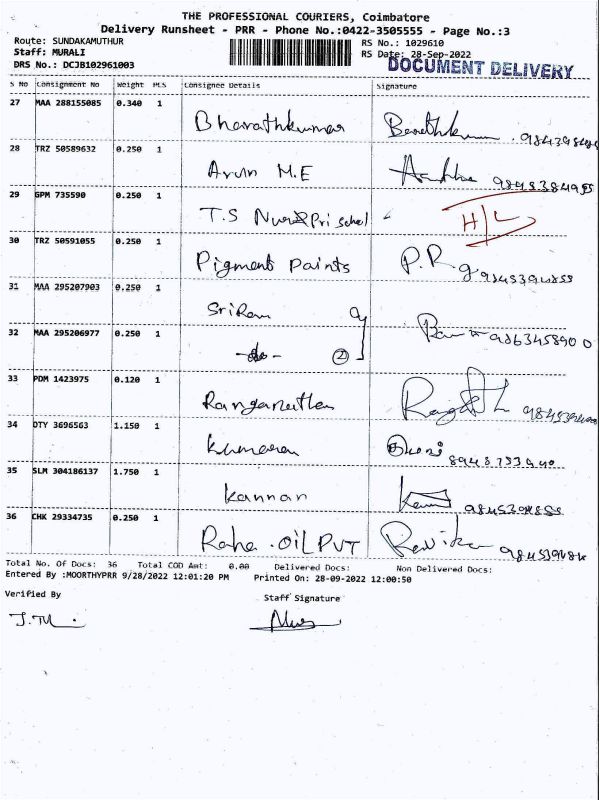 THE PROFESSIONAL COURIERS, Coimbatore
Delivery Runsheet - PRR - Phone No.:0422-3505555 - Page No.:3
Route: SUNDAKAMUTHUR
RS No.: 1029610
Staff: MURALI
RS Date: 28-Sep-2022
DRS No.: DCJB102961003
DOCUMENT DELIVERY
S No Consignment No Weight PCS Consignee Details Signature
27 MAA 288155085 0.340 1 Bharathkumar
28 TRZ 50589632 0.250 1 Arun M.E
29 GPM 735590 0.250 1 T.S Nur Pri school H/L
30 TRZ 50591055 0.250 1 Pigment Paints P.R
31 MAA 295207903 0.250 1 SriRam
32 MAA 295206977 0.250 1 -do- 2 9863458900
33 PDM 1423975 0.120 1 Ranganathan
34 DTY 3696563 1.150 1 Kumaran
35 SLM 304186137 1.750 1 Kannan
36 CHK 29334735 0.250 1 Raha .OIL PVT
Total No. Of Docs: 36 Total COD Amt: 0.00 Delivered Docs: Non Delivered Docs:
Entered By :MOORTHYPRR 9/28/2022 12:01:20 PM Printed On: 28-09-2022 12:00:50
Verified By Staff Signature